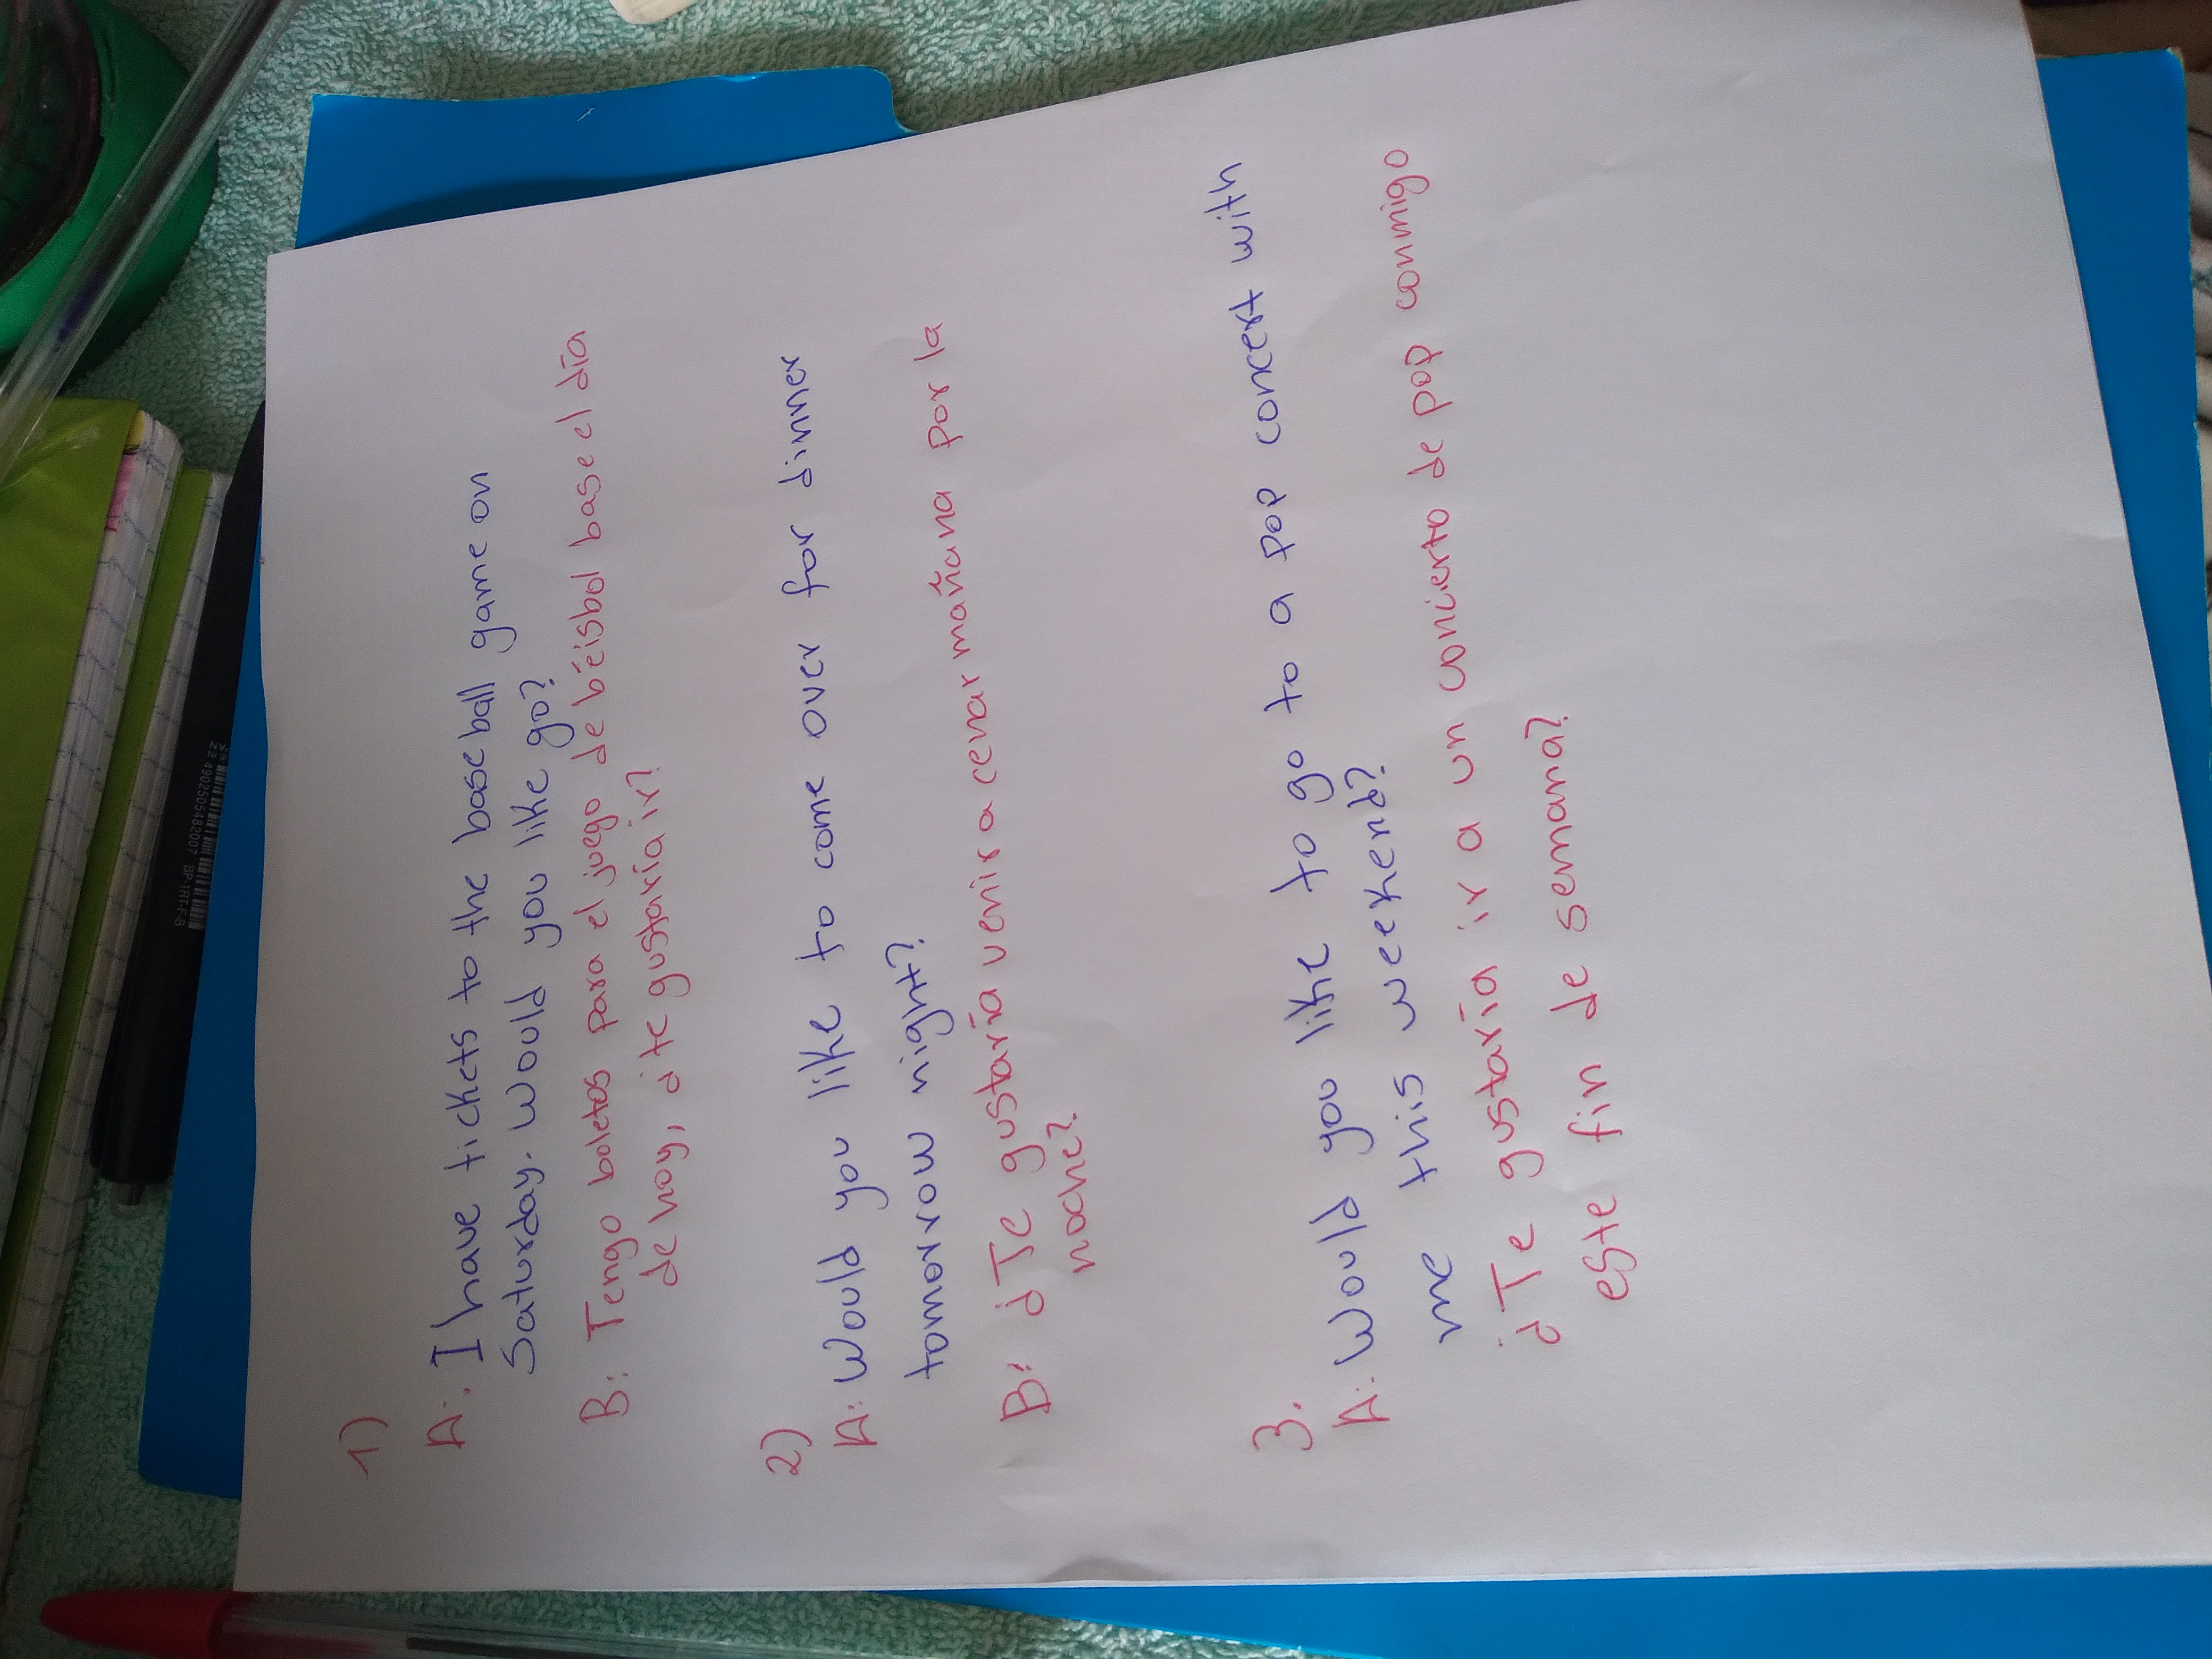 1)
A: I have tickets to the base ball game on
Saturday. Would you like go?
B: Tengo boletos para el juego de béisbol base el día
de hoy, ¿te gustaría ir?
2)
A: Would you like to come over for dinner
tomorrow night?
B: ¿Te gustaría venir a cenar mañana por la
noche?
3.
A: Would you like to go to a pop concert with
me this weekend?
¿Te gustaría ir a un concierto de pop conmigo
este fin de semana?
4902505482007 BP-1RT-F-B